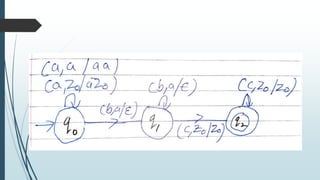 (a,a / aa)
(a,z₀/az₀) (b,a/ε) (c,z₀/z₀)
(b,a/ε)
q₀ q₁ q₂
(c,z₀/z₀)